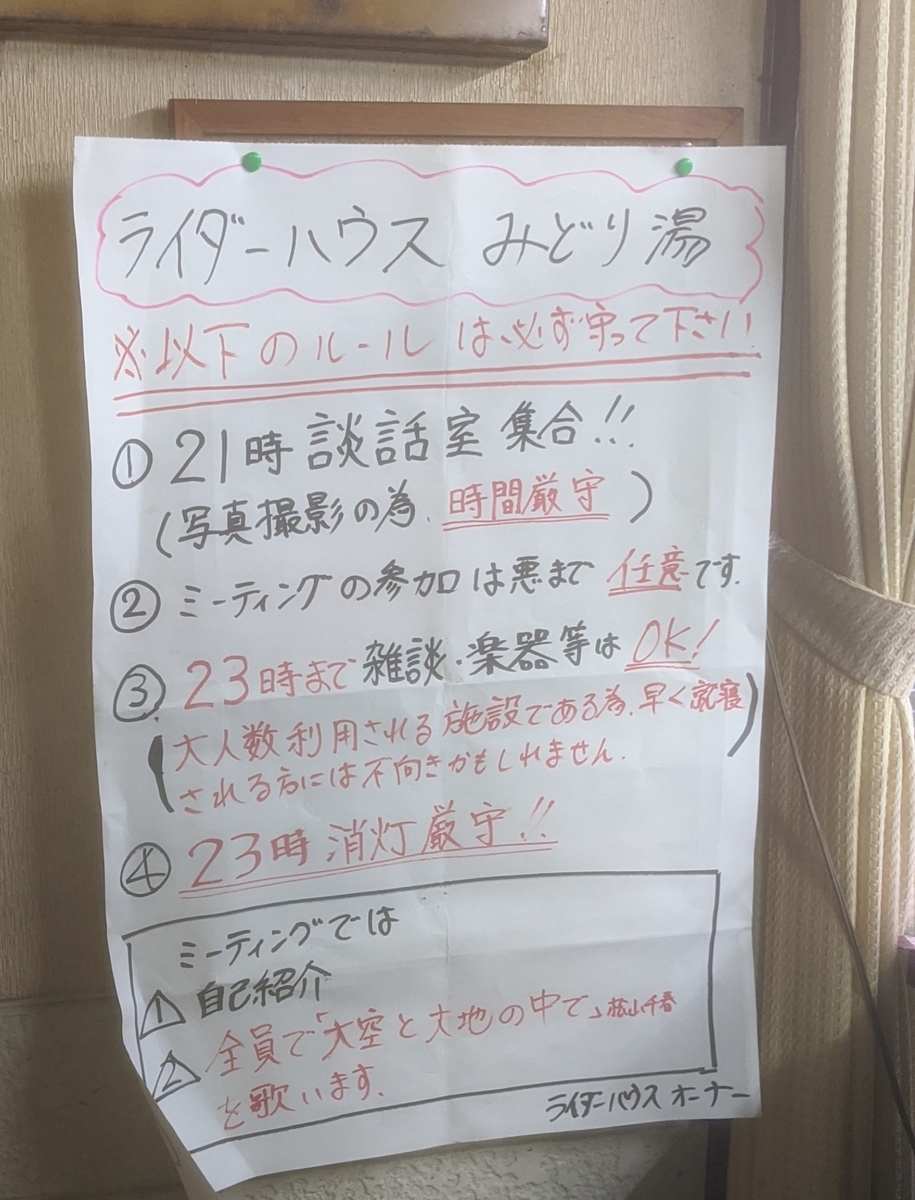 ライダーハウス みどり湯
※以下のルールは必ず守って下さい
① 21時 談話室 集合!!
(写真撮影の為、時間厳守)
② ミーティングの参加は悪まで 任意です。
③ 23時まで 雑談・楽器等は OK!
(大人数利用される施設である為、早く就寝
されるる方には不向きかもしれません。)
④ 23時 消灯厳守!!
ミーティングでは
1 自己紹介
2 全員で「大空と大地の中で」松山千春
を歌います。
ライダーハウス オーナー